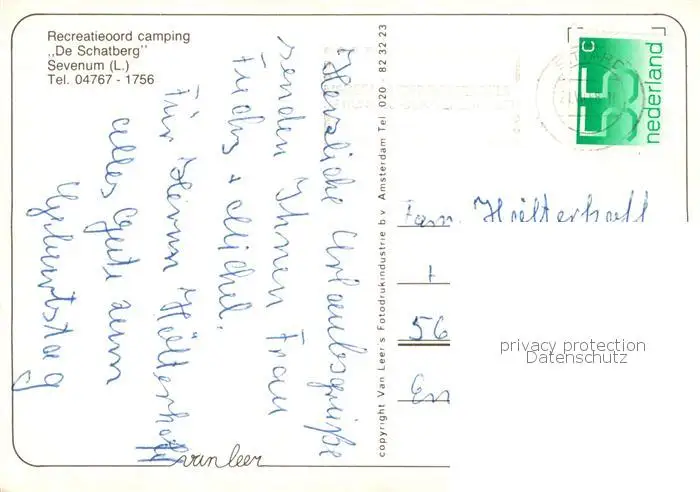 Recreatieoord camping
„De Schatberg"
Sevenum (L.)
Tel. 04767 - 1756
Herzliche Urlaubsgrüße
senden Ihnen Frau
Fuchs + Michel.
Für Herrn Hölterhoff
alles Gute zum
Geburtstag
van leer
copyright Van Leer's Fotodrukindustrie b.v. Amsterdam Tel. 020 - 82 32 23
c
55
nederland
Fam. Hölterhoff
+
56
En
privacy protection
Datenschutz